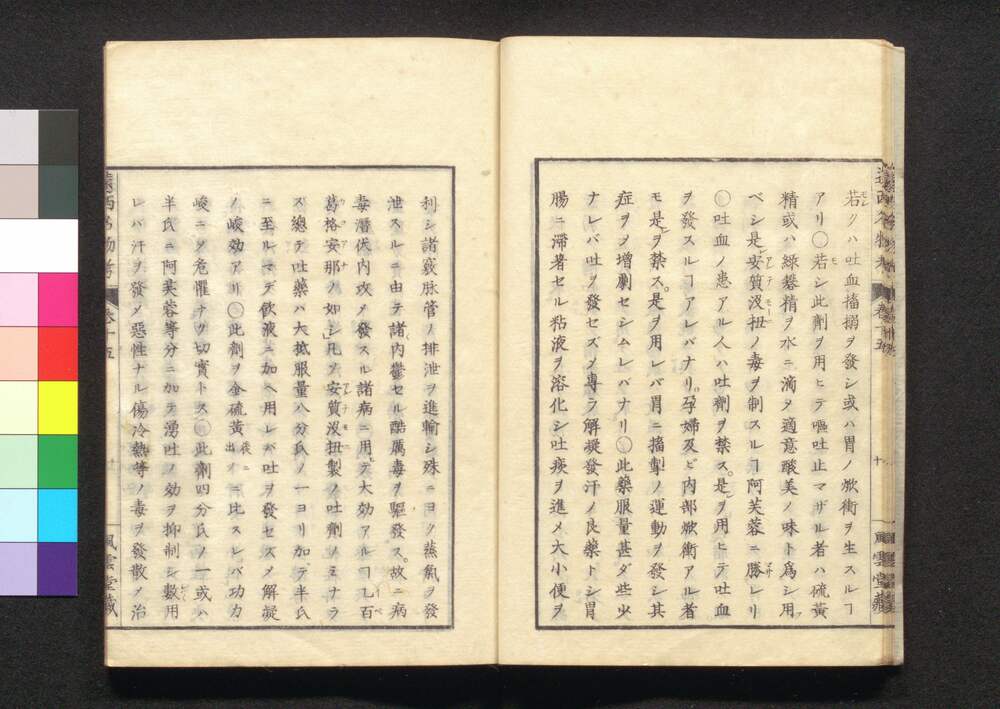 若クハ吐血搐搦ヲ發シ或ハ胃ノ焮衝ヲ生スルヿ
アリ〇若シ此劑ヲ用ヒテ嘔吐止マザル者ハ硫黃
精或ハ綠礬精ヲ水ニ滴メ適意酸美ノ味ト爲シ用
ベシ是レ安質沒扭ノ毒ヲ制スルヿ阿芙蓉ニ勝レリ
〇吐血ノ患アル人ハ吐劑ヲ禁ス是ヲ用ヒテ吐血
ヲ發スルヿアレバナリ孕婦及ビ内部焮衝アル者
モ是ヲ禁ス是ヲ用レバ胃ニ搐掣ノ運動ヲ發シ其
症ヲメ增劇セシムレバナリ〇此藥服量甚ダ些少
ナレバ吐ヲ發セズメ專ラ解凝發汗ノ良藥トシ胃
腸ニ滯著セル粘液ヲ溶化シ吐痰ヲ進メ大小便ヲ
利シ諸竅脉管ノ排泄ヲ進輸シ殊ニヨク蒸氣ヲ發
泄スルニ由テ諸内鬱セル酷厲毒ヲ驅發ス故ニ病
毒潛伏内攻メ發スル諸病ニ用テ大効アルヿ乚百
葛格安那ノ如シ凡ソ安質沒扭製ノ吐劑ノミナラ
ス總テ吐藥ハ大抵服量八分氏ノ一ヨリ加テ半氏
ニ至ルマデ飲液ニ加ヘ用レバ吐ヲ發セスメ解凝
ノ峻効アリ〇此劑ヲ金硫黃後ニ出イニ比スレバ功力
峻ニメ危懼ナク切實トス〇此劑四分氏ノ一或ハ
半氏ニ阿芙蓉等分ニ加テ湧吐ノ効ヲ抑制シ數用
レバ汗ヲ發メ惡性ナル傷冷熱等ノ毒ヲ發散メ治
遠西名物考 卷十五
風雲堂藏